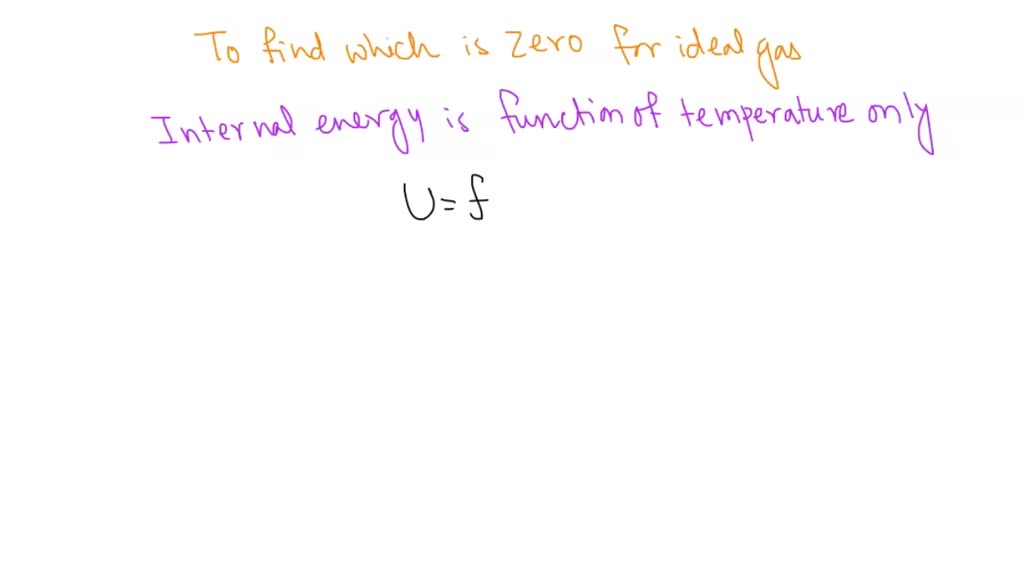 To find which is zero for ideal gas
Internal energy is function of temperature only
U = f